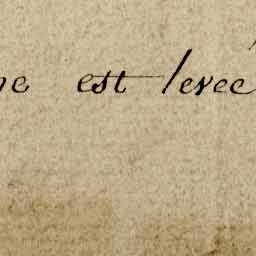 ne est levec